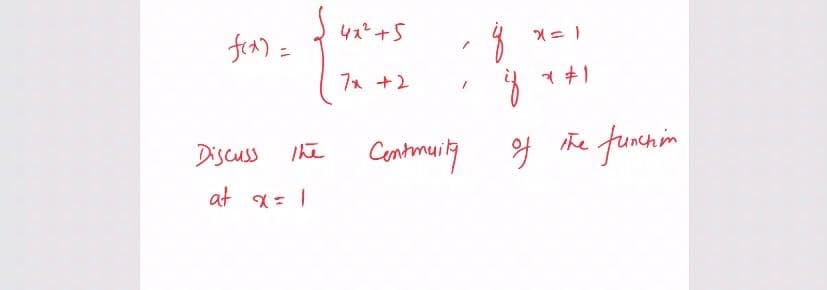 f(x) = { 4x² + 5 , if x = 1
7x + 2 , if x ≠ 1
Discuss the Continuity of the function
at x = 1